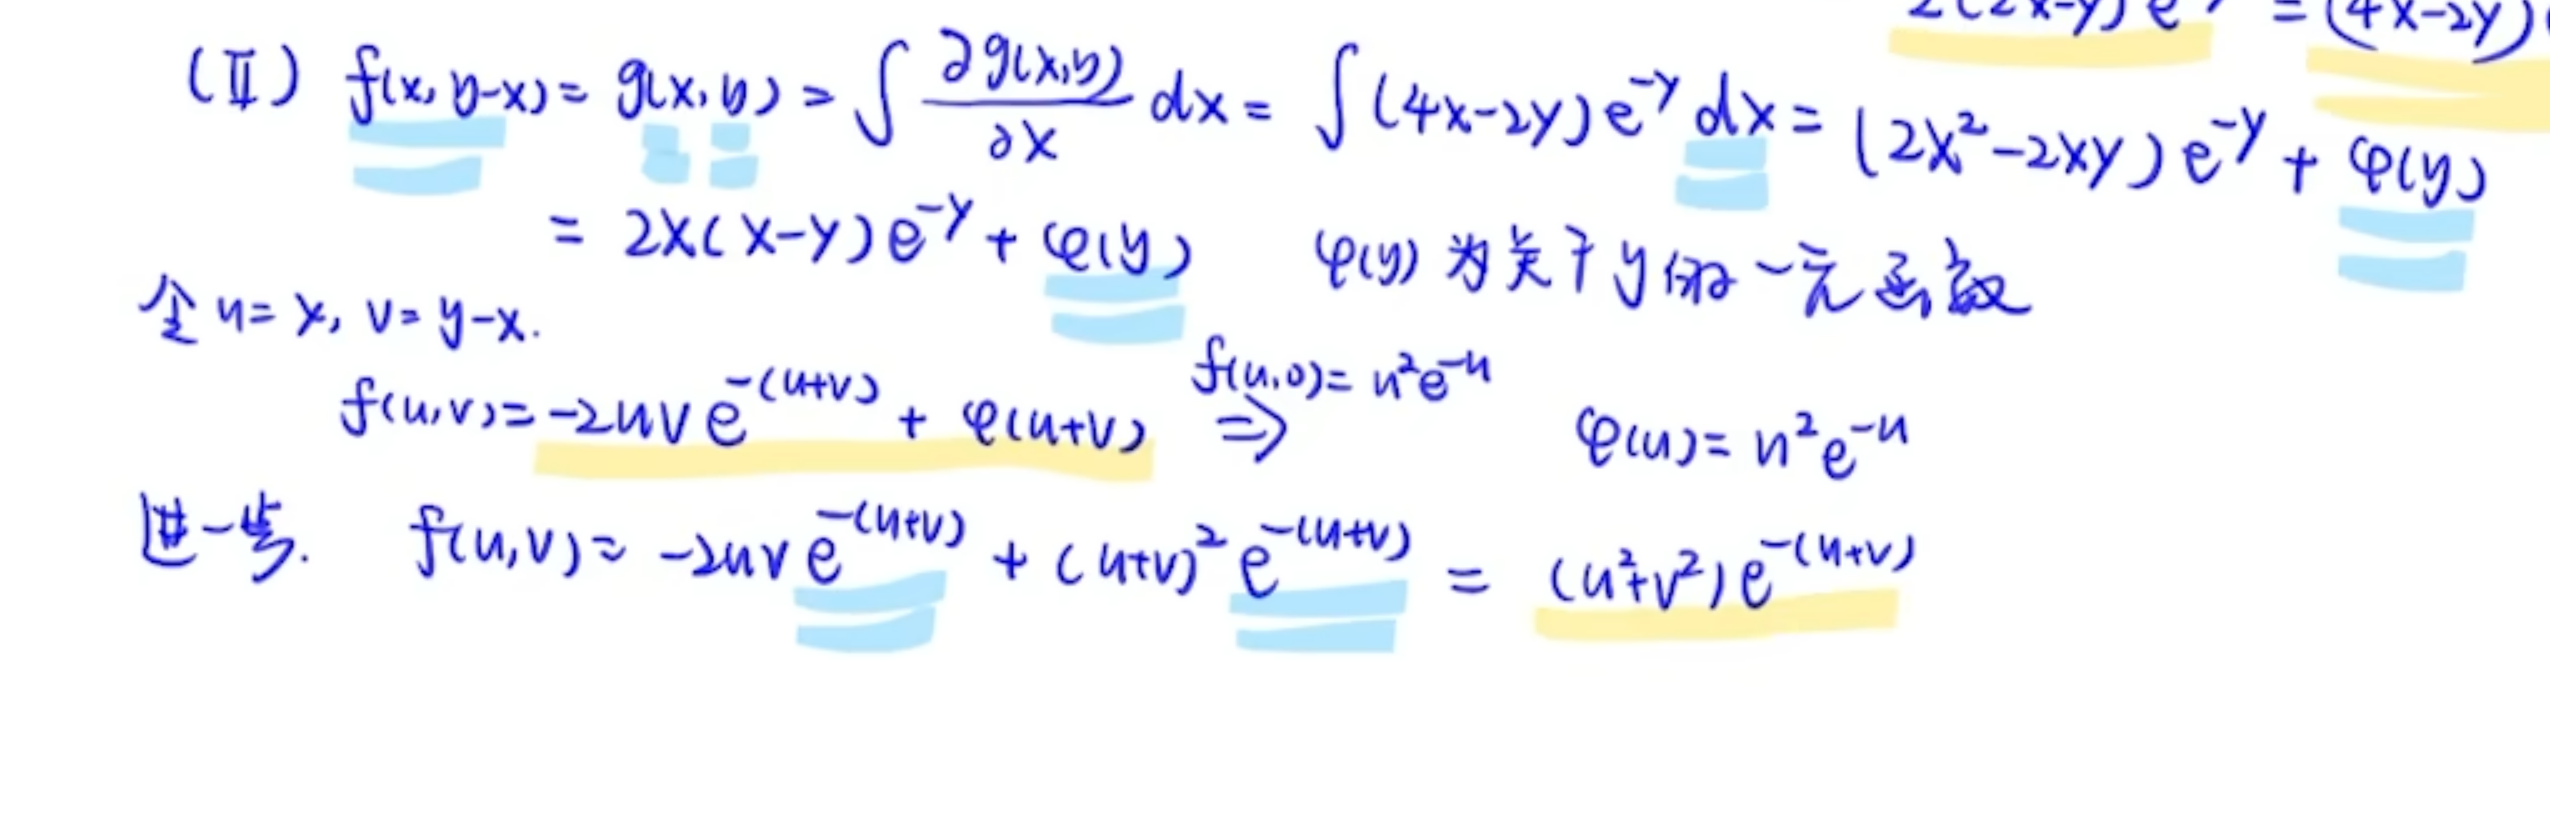 2(2x-y)e = (4x-2y)
(Ⅱ) f(x, y-x) = g(x, y) = ∫ ∂g(x,y)/∂x dx = ∫ (4x-2y)e^{-y} dx = (2x²-2xy)e^{-y} + φ(y)
= 2x(x-y)e^{-y} + φ(y) φ(y) 为关于y的一元函数
令 u=x, v=y-x.
f(u,0)=u²e^{-u}
f(u,v)=-2uve^{-(u+v)} + φ(u+v) ⇒ φ(u)=u²e^{-u}
进一步. f(u,v)=-2uve^{-(u+v)} + (u+v)²e^{-(u+v)} = (u²+v²)e^{-(u+v)}